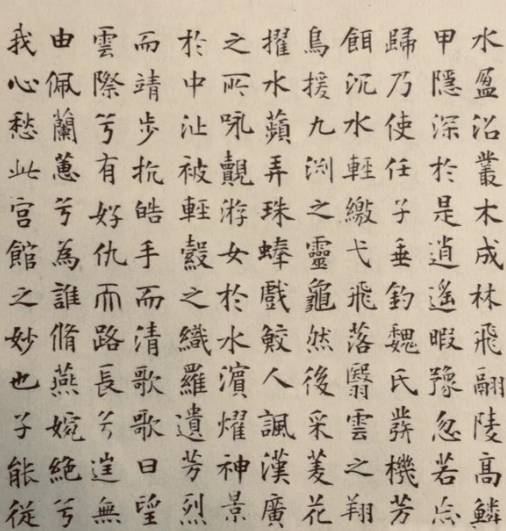 水盈沼叢木成林飛翮陵高鱗
甲隱深於是逍遙暇豫忽若忘
歸乃使任子垂釣魏氏發機芳
餌沉水輕繳弋飛落翳雲之翔
鳥援九渕之靈龜然後采菱花
擢水蘋弄珠蜯戲鮫人諷漢廣
之所詠覿游女於水濱燿神景
於中沚被輕縠之纖羅遺芳烈
而靖步抗皓手而清歌歌曰望
雲際兮有好仇天路長兮往無
由佩蘭蕙兮為誰脩燕婉絕兮
我心愁此宮館之妙也子能從